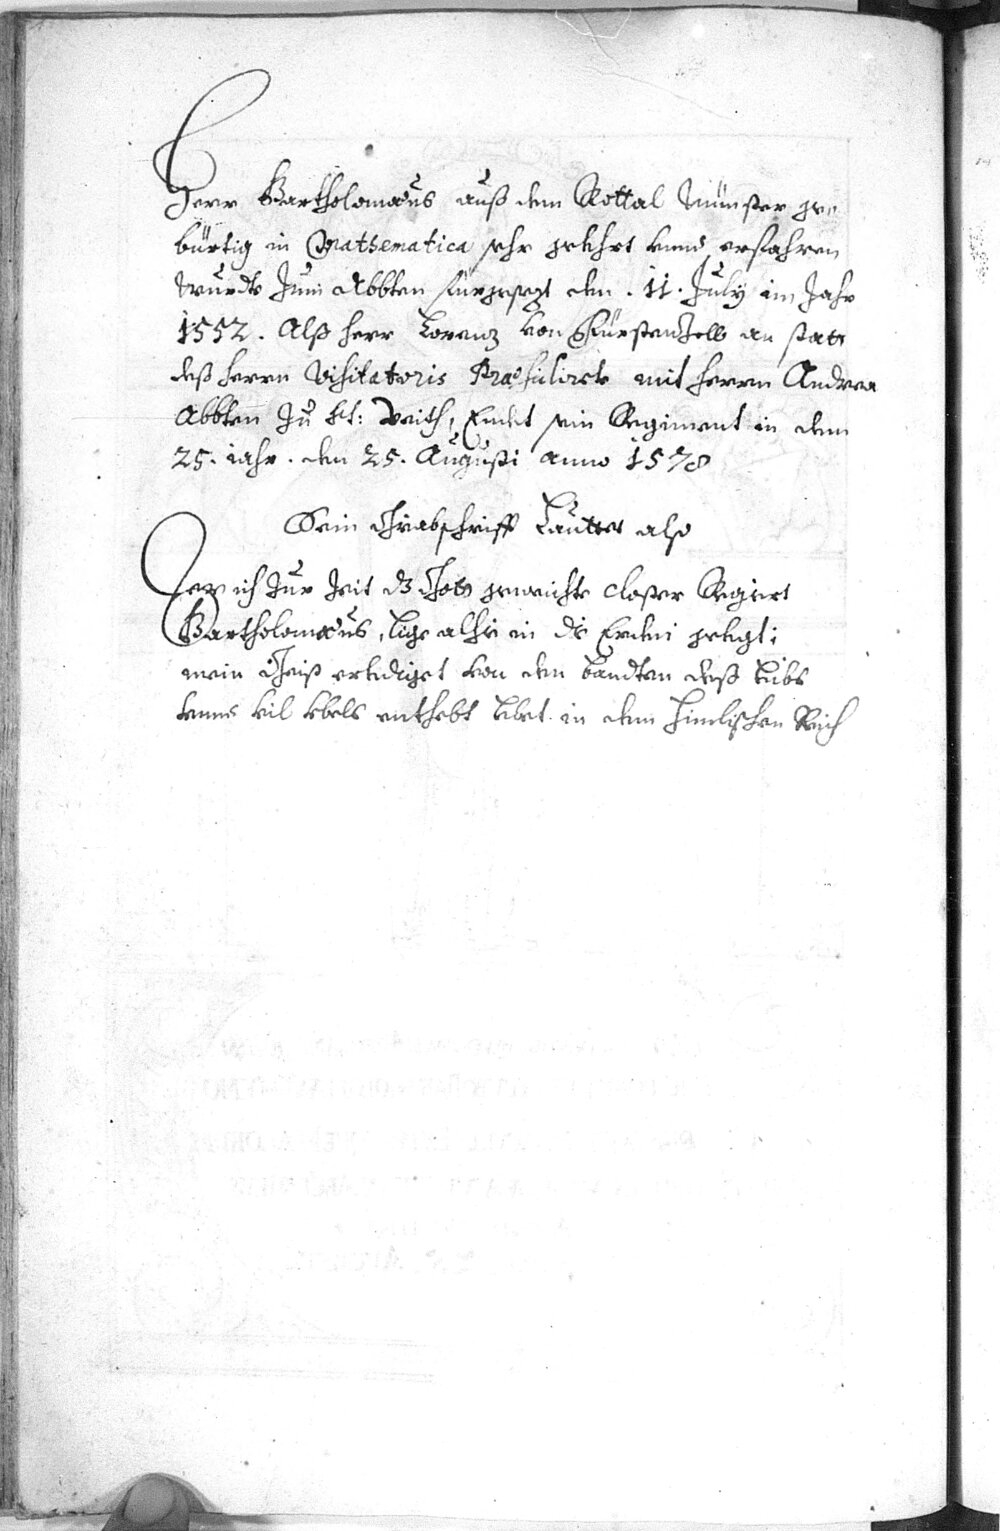 Herr Bartholomæus auß dem Rottal Münster ge-
bürtig in Mathematica sehr gelehrt vnnd erfahren
wurdte zum Abbten fürgesezt den . 11. July im Jahr
1552. Alß herr Lorenz von Fürstenzell an statt
deß herrn Visitatoris Præsidirte mit herrn Andrea
Abbten zu St: Veith, Endet sein Regiment in dem
25. iahr . den 25. Augusti anno 1578
Sein Grabschrifft Lauttet also
Der ich zur Zeit dz Gott geweichte closter Regiert
Bartholomæus, lige alhie in die Erden gelegt;
mein Geist erlediget von den bandten deß leibs
vnnd vil vbels enthebt lebet in dem himlischen Reich